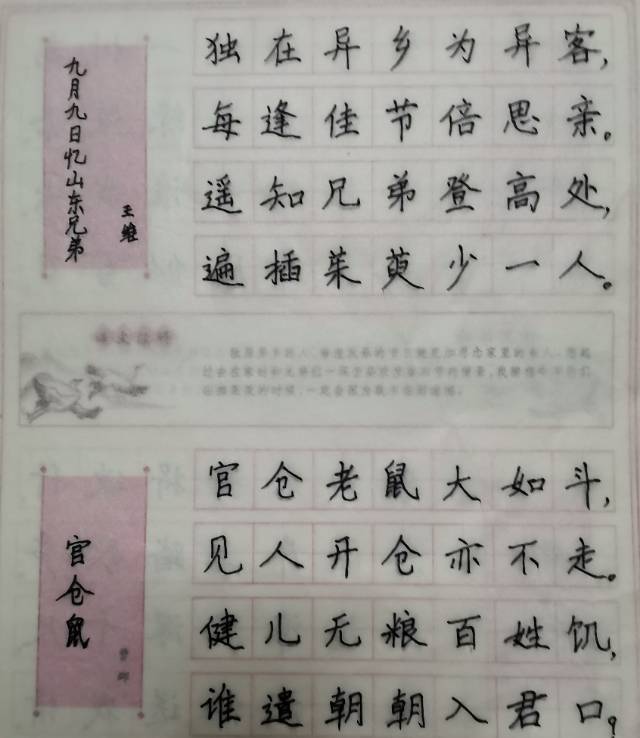 九月九日忆山东兄弟
王维
独在异乡为异客,
每逢佳节倍思亲。
遥知兄弟登高处,
遍插茱萸少一人。
官仓鼠
曹邺
官仓老鼠大如斗,
见人开仓亦不走。
健儿无粮百姓饥,
谁遣朝朝入君口?